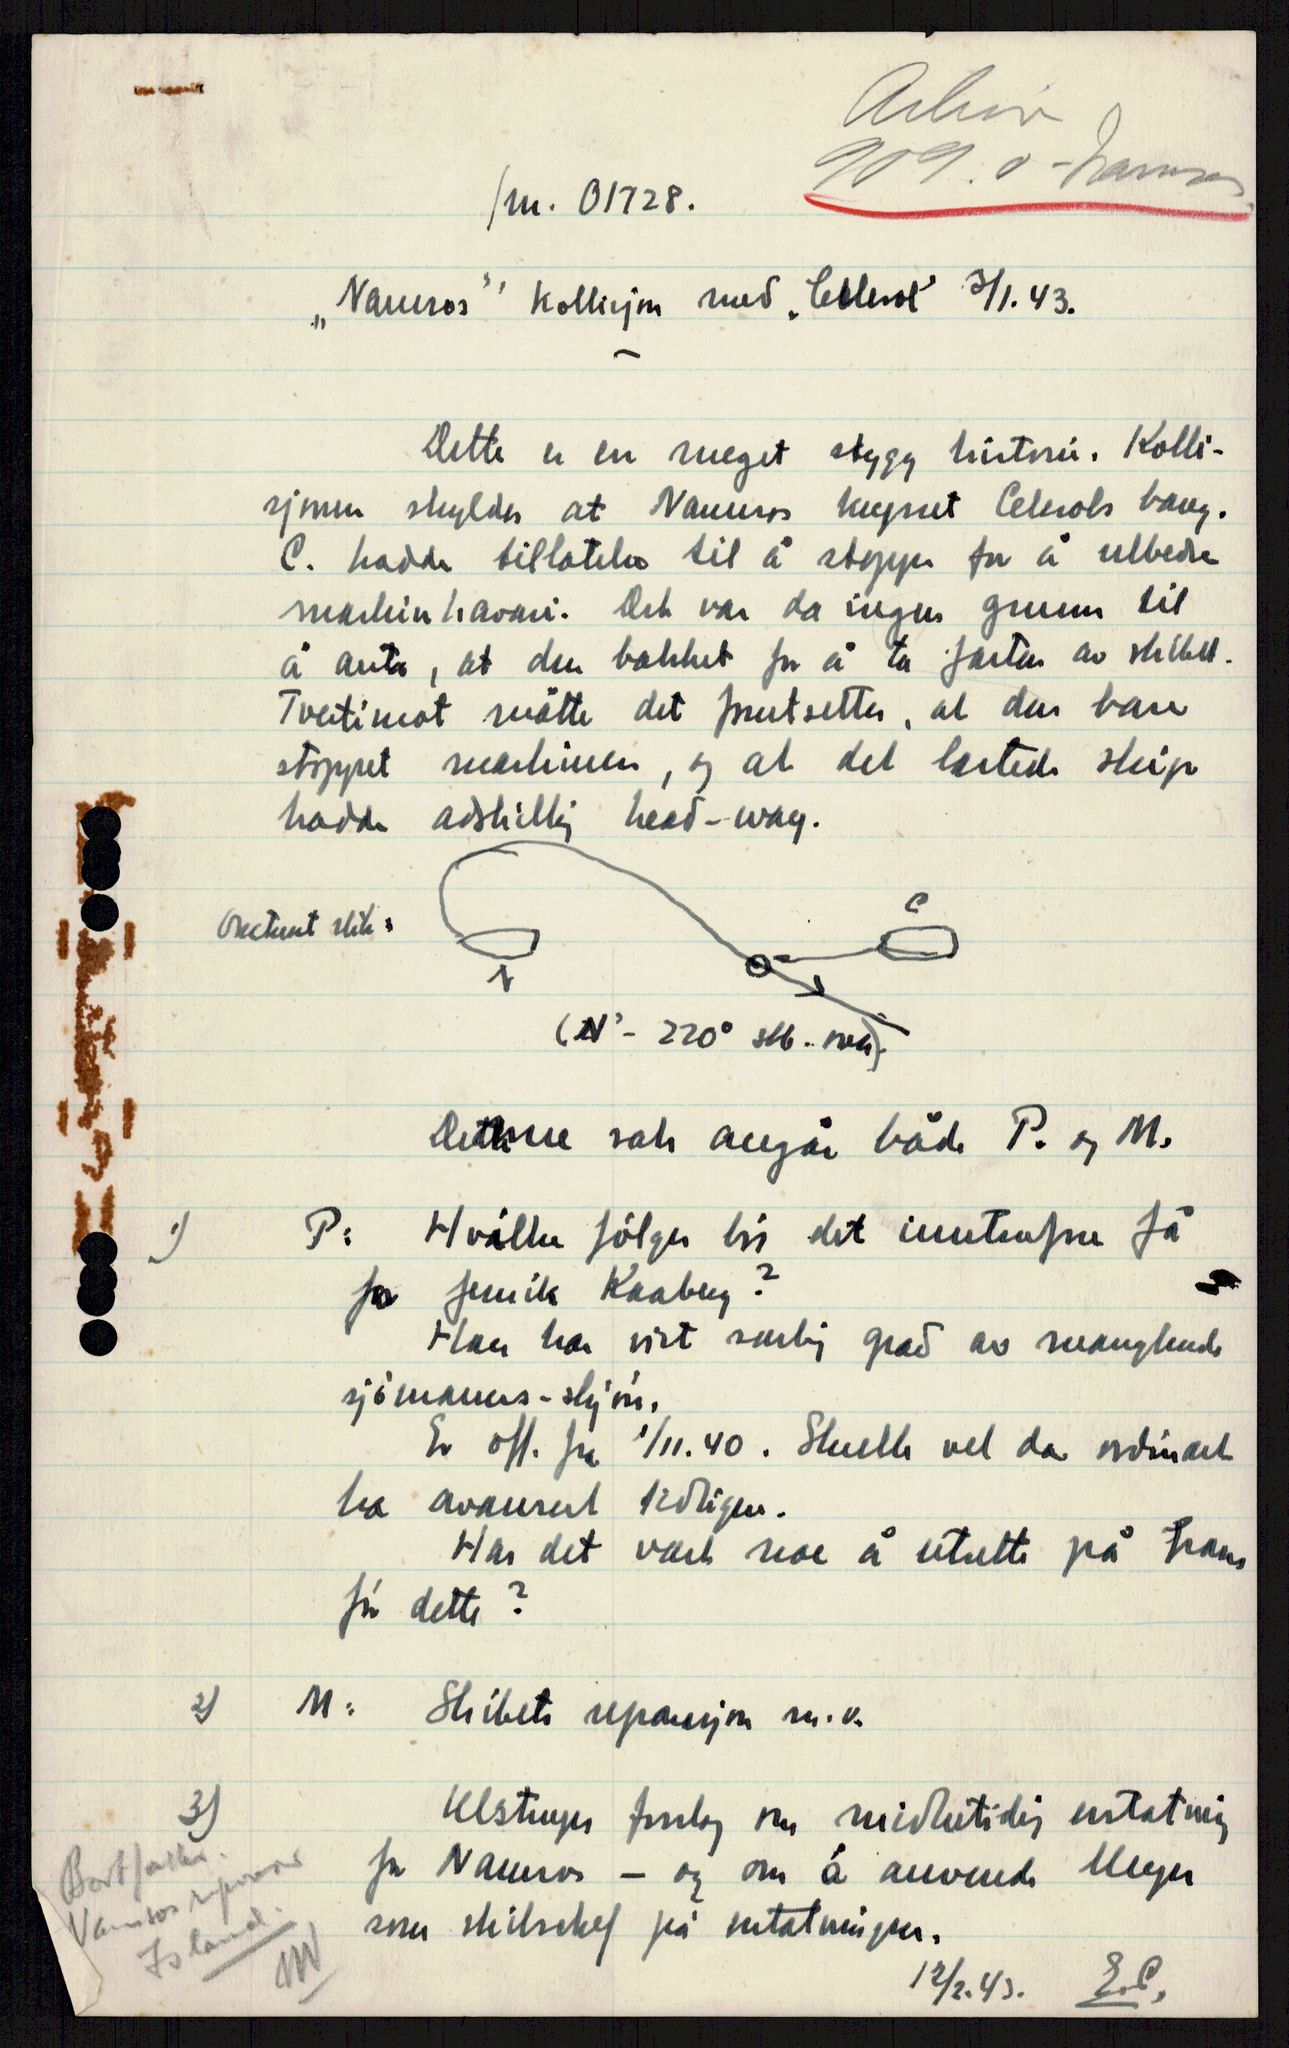 Arkiv
909.0 - Namsos
Jnr. 01728.
„Namsos" kollisjon med „Celerol" 3/1.43.
Dette er en meget stygg historie. Kolli-
sjonen skyldes at Namsos krysset Celerols baug.
C. hadde tillatelse til å stoppe for å utbedre
maskinhavari. Det var da ingen grunn til
å anta, at den bakket for å ta farten av skibet.
Tvertimot måtte det forutsettes, at den bare
stoppet maskinen, og at det lastede skip
hadde adskillig head-way.
skik:
C
N
(N' - 220° stb. over).
Denne sak angår både P. og M.
1) P: Hvilke følger bør det inntrufne få
for fenrik Kaaberg?
Han har vist særlig grad av manglende
sjømanns-skjønn.
Er off. fra 1/11.40. Skulle vel da ordinært
ha avansert tidligere.
Har det vært noe å utsette på hans
før dette?
2) M: Skibets reparasjon m.v.
3) Ulstrups forslag om midlertidig erstatning
for Namsos – og om å anvende Meyer
som skibssjef på erstatningen.
12/2.43. E.C.
Bortfaller.
Namsos reparer
Island.